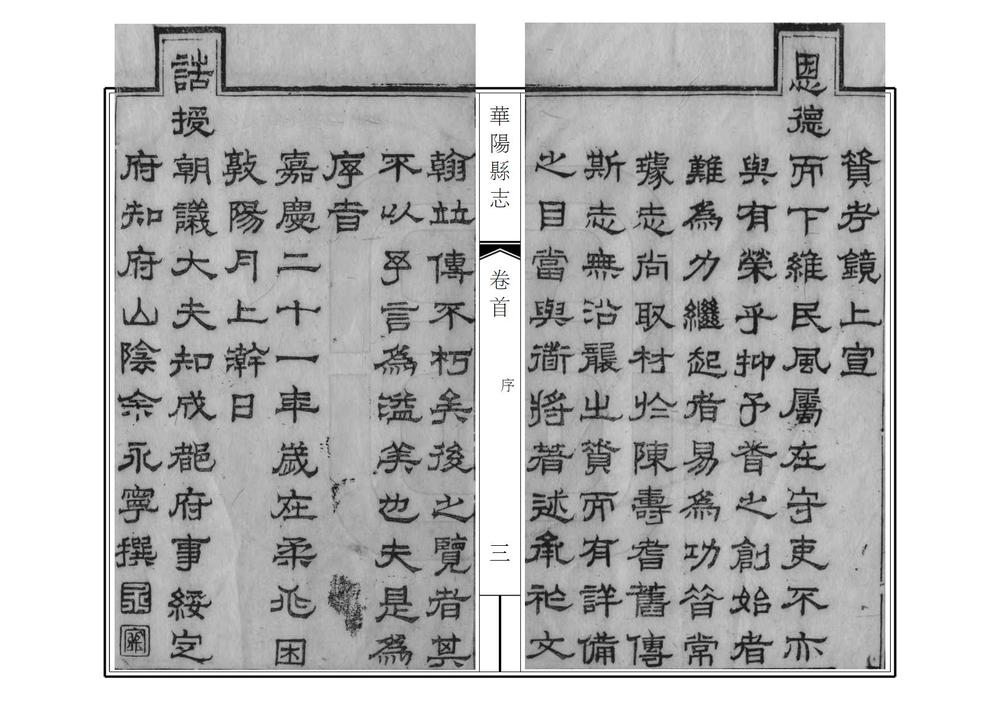 資考鏡上宣
恩德而下維民風屬在守吏不亦
與有榮乎抑予之創始者
難為力繼起者易為功晉常
璩志尚取材於陳壽耆舊傳
斯志無沿襲之資而有詳備
之目當與衟將著述承祚文
華陽縣志
卷首
序
三
翰竝傳不朽矣後之覽者其
不以予言為溢美也夫是為
序旹
嘉慶二十一年歲在柔兆困
敦陽月上澣日
誥授朝議大夫知成都府事綏定
府知府山陰余永寧撰
永
寧